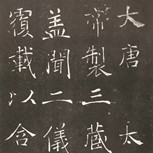 大唐太
帝製三藏
盖聞二儀
覆載以含